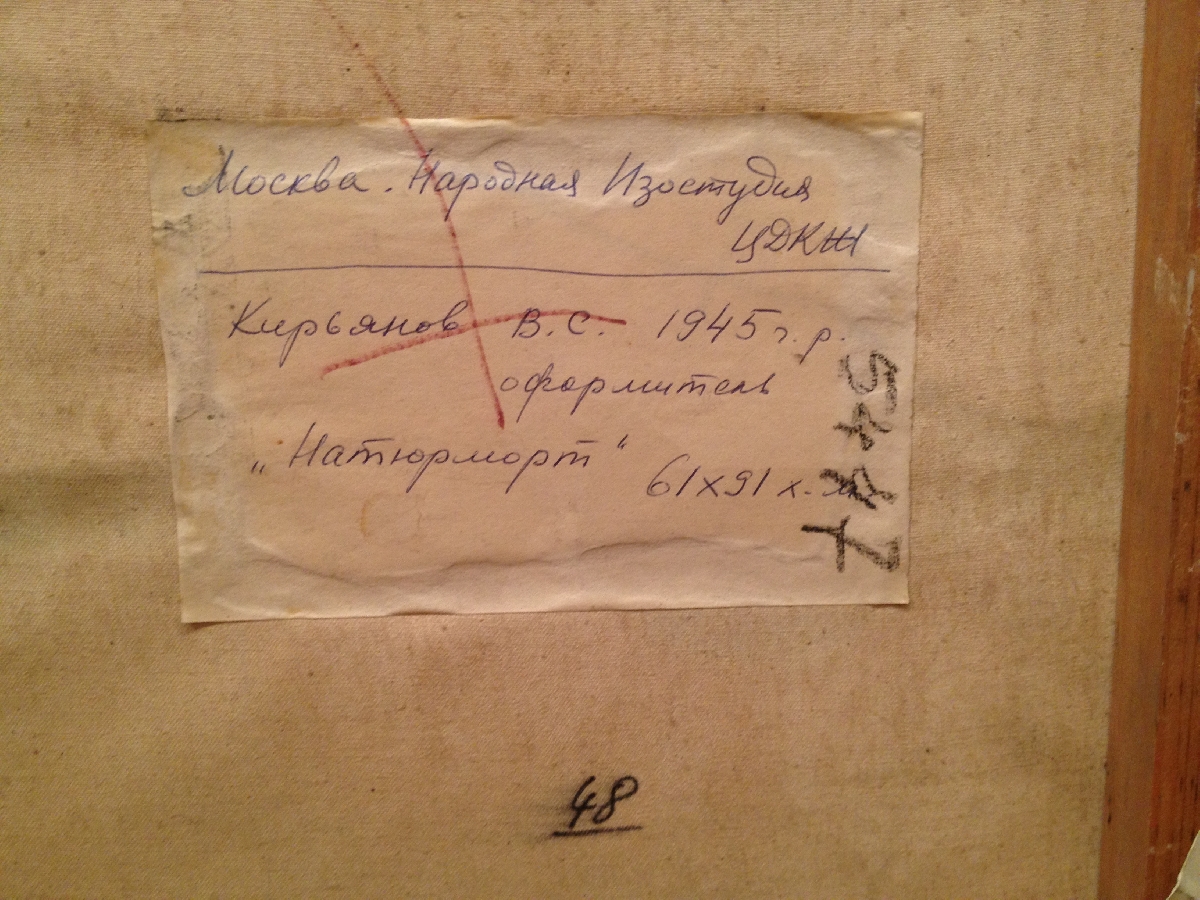 Москва. Народная Изостудия
ЦДКЖ
Кирьянов В.С. 1945 г.р.
оформитель
„Натюрморт“ 61х91 х.м
48